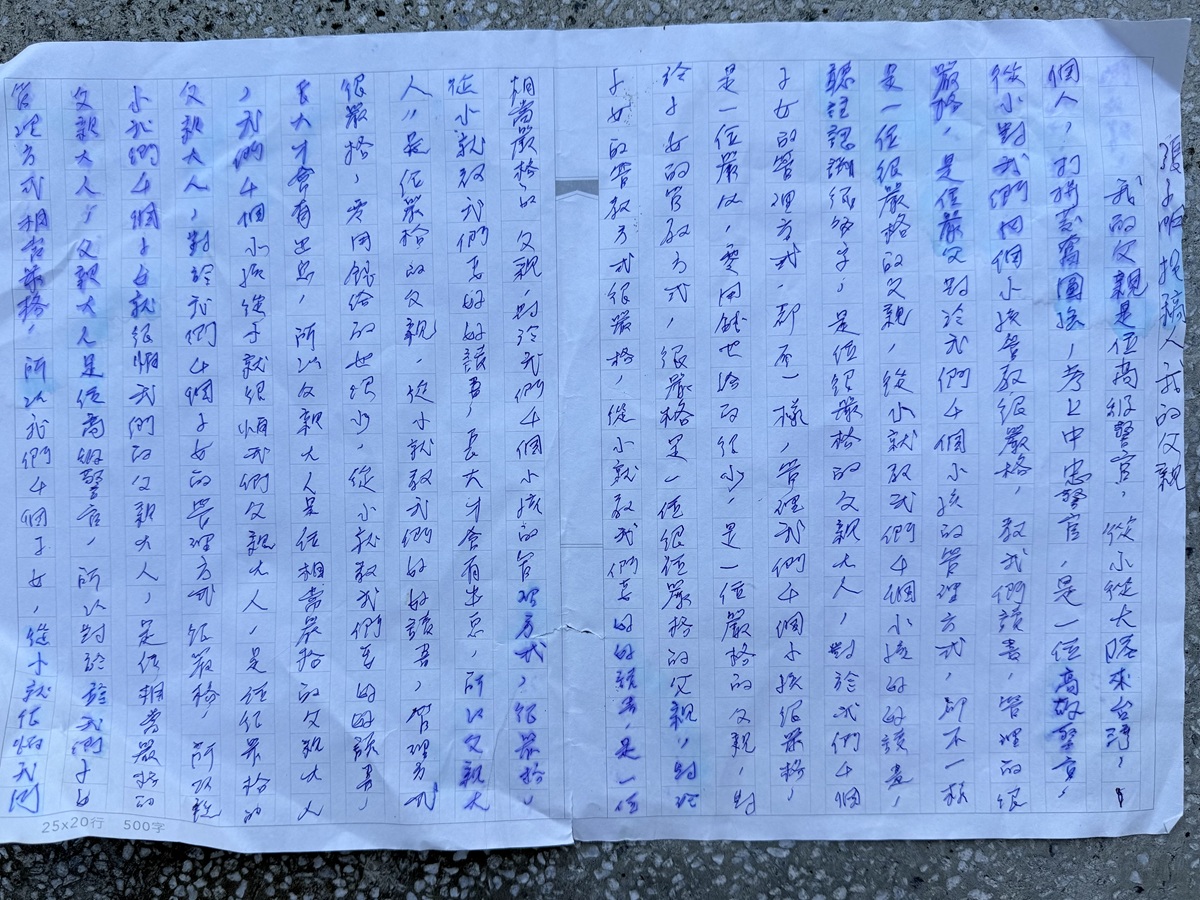 張 投稿人我的父親
我的父親是位高級警官，從小從大陸來台灣，
個人，打拼奮圖強，考上中忠警官，是一位高級警官，
從小對我們四個小孩管教很嚴格，教我們讀書，管理的很
嚴格，是位嚴父對於我們4個小孩的管理方式，卻不一樣
是一位很嚴格的父親，從小就教我們4個小孩好的讀書，
聽話認識很多字，是位很嚴格的父親大人，對於我們4個
子女的管理方式，都不一樣，管理我們4個小孩很嚴格，
是一位嚴父，零用錢也給的很少，是一位嚴格的父親，對
於子女的管教方式，很嚴格是一位很位嚴格的父親，對於
子女的管教方式很嚴格，從小就教我們要好好讀書，是一位
相當嚴格的父親，對於我們4個小孩的管理方式，很嚴格，
從小就教我們要好好讀書，長大才會有出息，所以父親大
人，是位嚴格的父親，從小就教我們好好讀書，管理方式
很嚴格，零用錢給的也很少，從小就教我們要好好讀書，
長大才會有出息，所以父親大人是位相當嚴格的父親大人
，我們4個小孩從子就很怕我們父親大人，是位很嚴格的
父親大人，對於我們4個子女的管理方式很嚴格，所以從
小我們4個子女就很怕我們的父親大人，是位相當嚴格的
父親大人，父親大人是位高級警官，所以對於於我們子女
管理方式相當嚴格，所以我們4個子女，從小就很怕我們
25x20行 500字